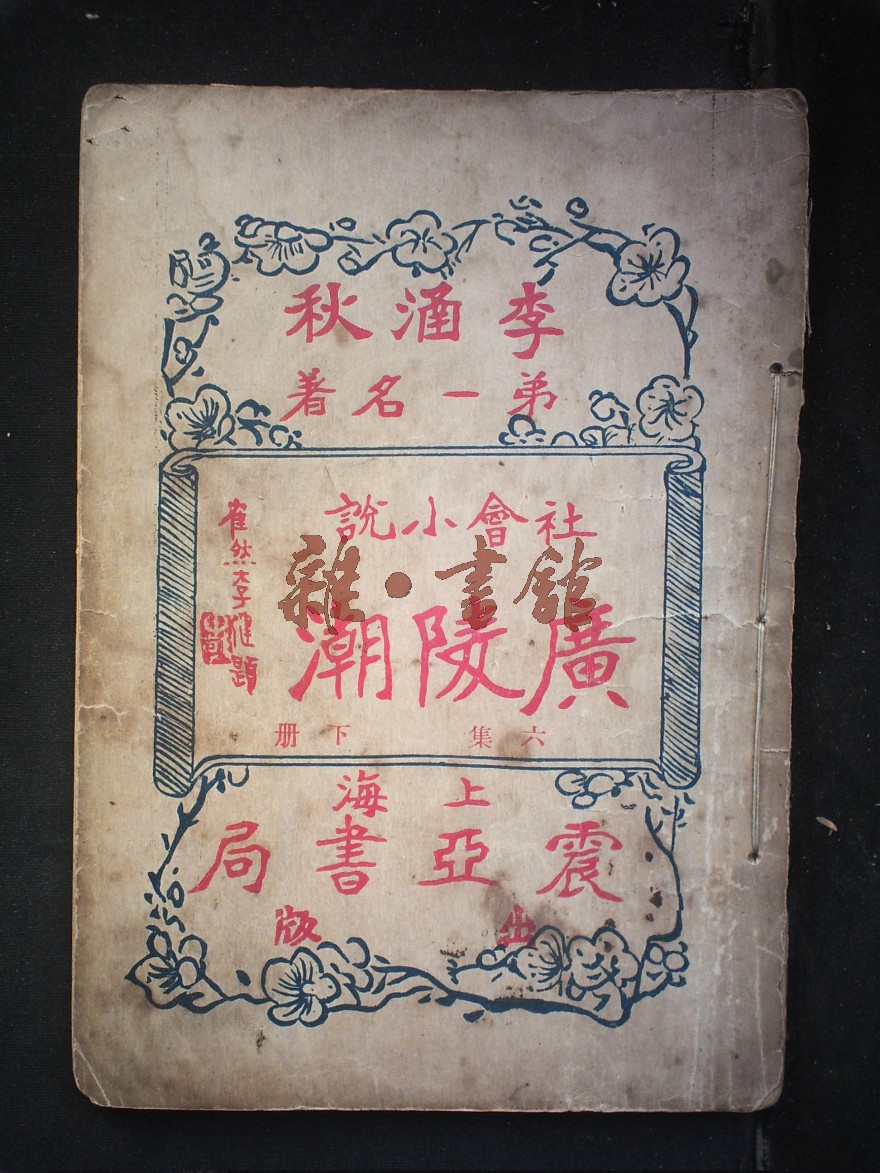 李涵秋
弟一名著
社會小說
廣陵潮
六集 下册
上海
震亞書局
出版
然李
題
雜·書館